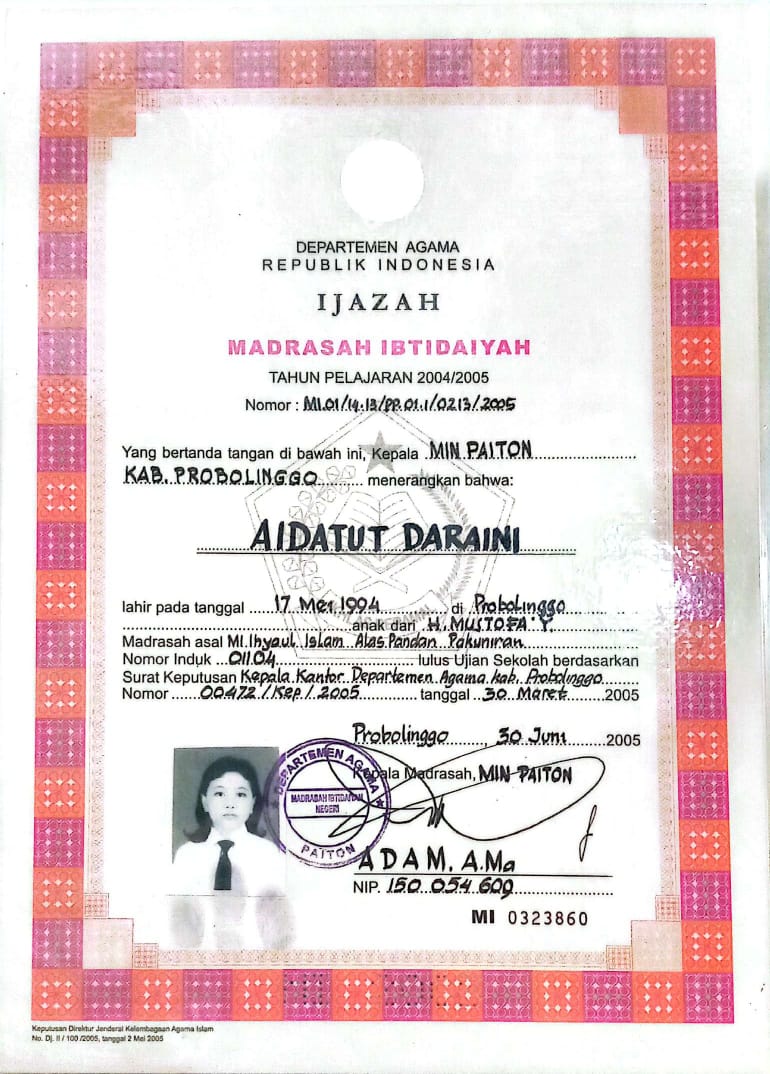 DEPARTEMEN AGAMA
REPUBLIK INDONESIA
IJAZAH
MADRASAH IBTIDAIYAH
TAHUN PELAJARAN 2004/2005
Nomor : MI.01/14.13/PP.01.1/0213/2005
Yang bertanda tangan di bawah ini, Kepala MIN PAITON
KAB. PROBOLINGGO menerangkan bahwa:
AIDATUT DARAINI
lahir pada tanggal 17 Mei 1994 di Probolinggo
anak dari H. MUSTOFA Y.
Madrasah asal MI. Ihyaul Islam Alas Pandan Pakuniran
Nomor Induk 01104 lulus Ujian Sekolah berdasarkan
Surat Keputusan Kepala Kantor Departemen Agama kab. Probolinggo
Nomor 00472/Kep/2005 tanggal 30 Maret 2005
Probolinggo, 30 Juni 2005
Kepala Madrasah, MIN PAITON
DEPARTEMEN AGAMA
MADRASAH IBTIDAIYAH
NEGERI
PAITON
ADAM, A.Ma
NIP. 150 054 609
MI 0323860
Keputusan Direktur Jenderal Kelembagaan Agama Islam
No. Dj. II / 100 /2005, tanggal 2 Mei 2005